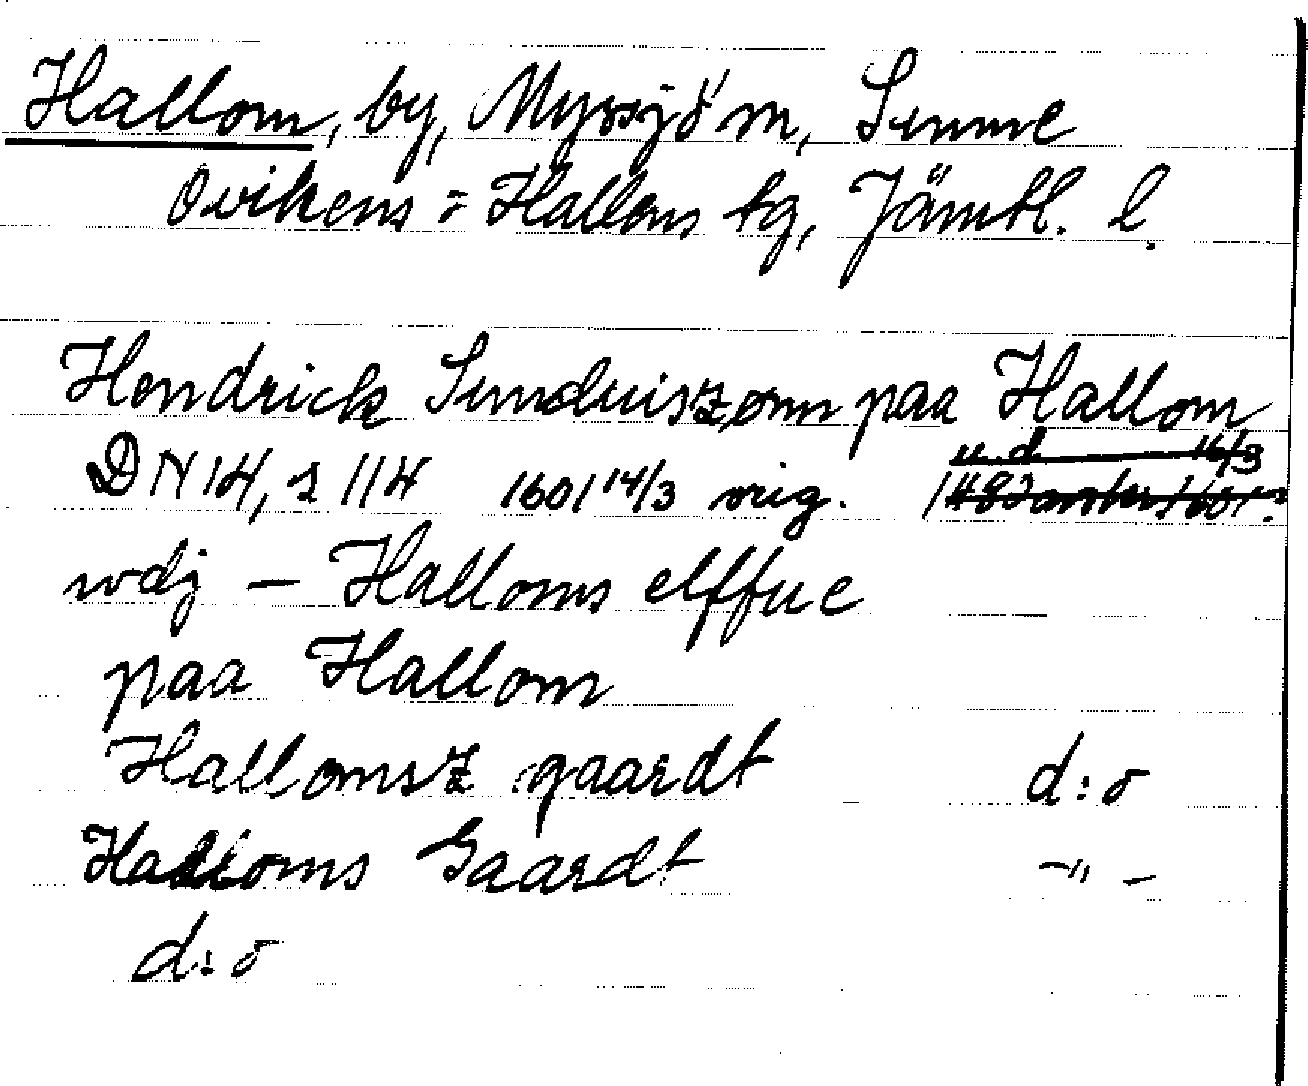 Hallom, by, Myssjö sn, Sunne
Ovikens o Hallens tg, Jämtl. l.
Hendrick Sunduiszønn paa Hallom
DN 14, s 114 1601 14/3 orig.
wdj — Halloms elffue
paa Hallom
Hallomsz gaardt d:o
Halloms Gaardt —"—
d:o